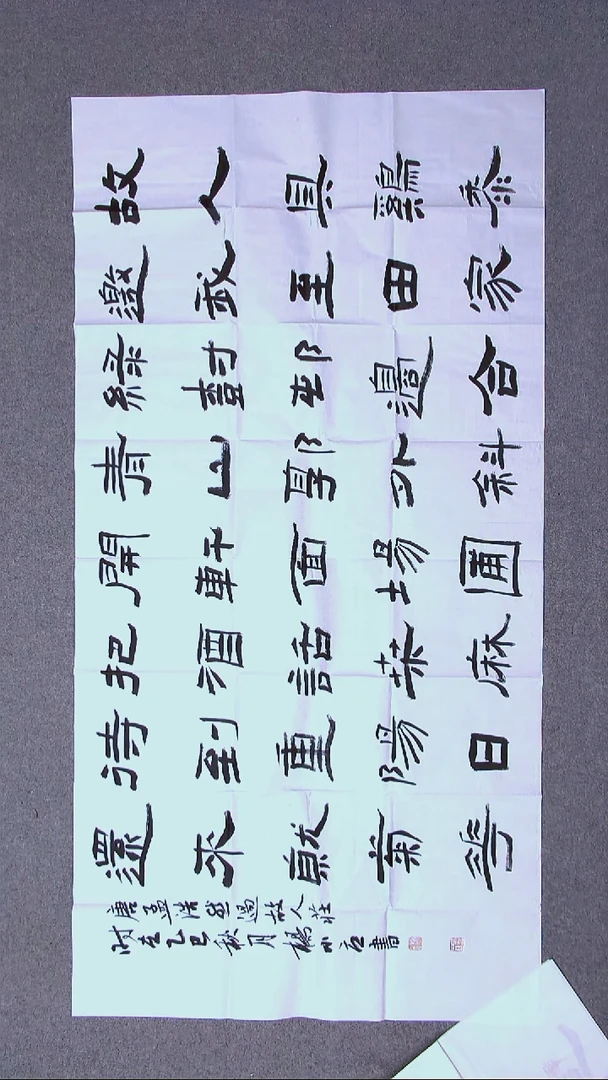 故人具鷄黍
邀我至田家
綠樹邨邊合
青山郭外斜
開軒面場圃
把酒話桑麻
待到重陽日
還來就菊華
唐孟浩然過故人莊
时在乙巳秋月楊書